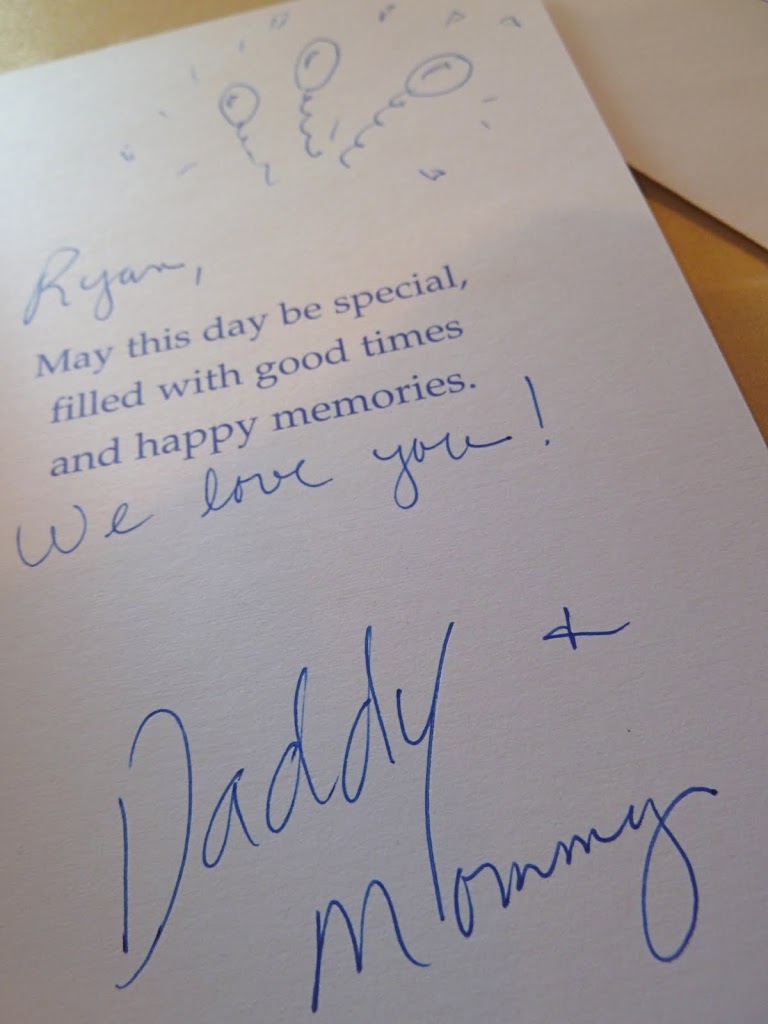 Ryan,
May this day be special,
filled with good times
and happy memories.
We love you!
Daddy +
Mommy